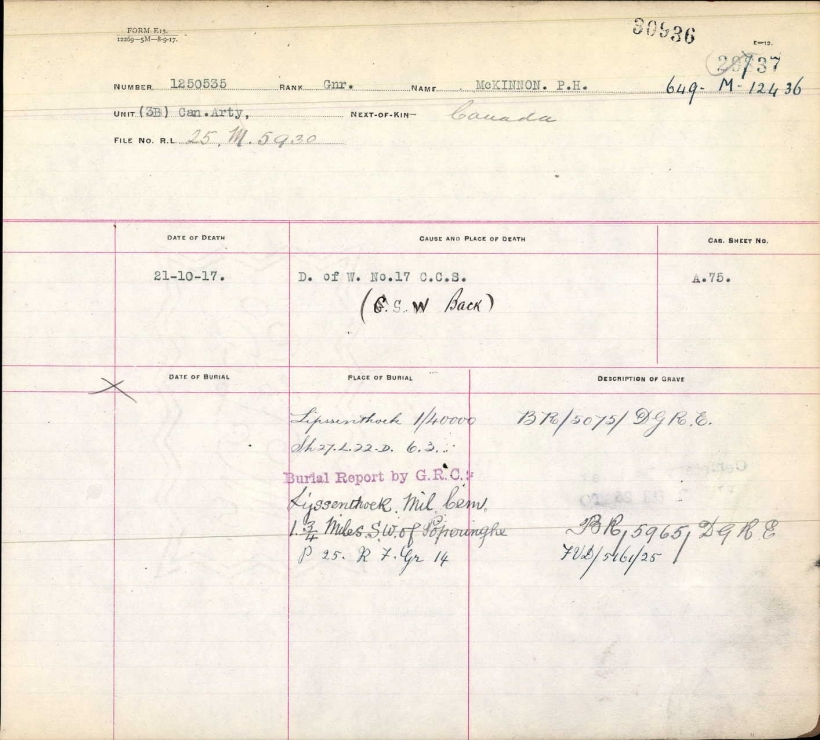 FORM E12.
12269—5M—8-9-17.
30936
E—12.
NUMBER 1250535 RANK Gnr. NAME McKINNON. P.H. 649- M- 12436
UNIT (3B) Can.Arty, NEXT-OF-KIN— Canada
FILE NO. R.L. 25. M. 5930
DATE OF DEATH CAUSE AND PLACE OF DEATH CAS. SHEET NO.
21-10-17. D. of W. No.17 C.C.S. A.75.
(G.S.W Back)
DATE OF BURIAL PLACE OF BURIAL DESCRIPTION OF GRAVE
Lijssenthoek 1/40000 BR/5075/ DGR.E.
Sh27.L.22.D. 6.3.
Burial Report by G.R.C.:
Lyssenthoek Mil Cem,
1 3/4 Miles S.W. of Poperinghe BR/5965/ DGRE
P 25. R 7. Gr 14